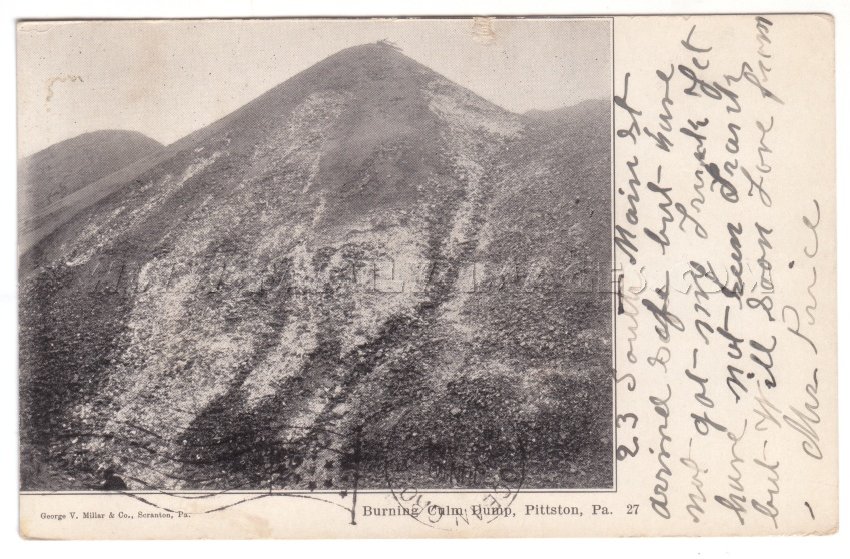 23 South Main St
arrived Safe but have
not got my Trunk Yet
have not seen Franty
but Will Soon Love from
Mrs Price
George V. Millar & Co., Scranton, Pa.
Burning Culm Dump, Pittston, Pa. 27
OCEAN GRO